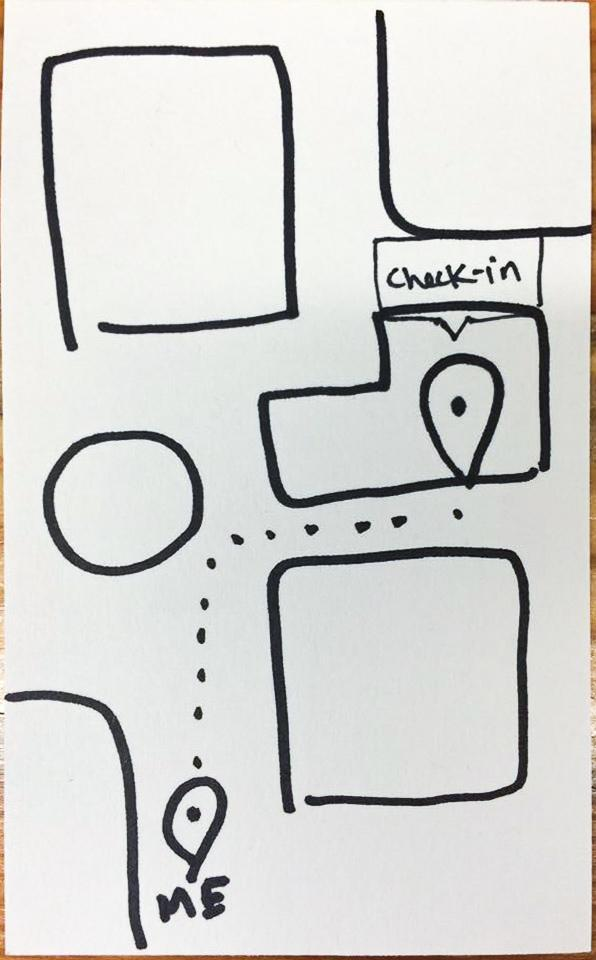 check-in
ME